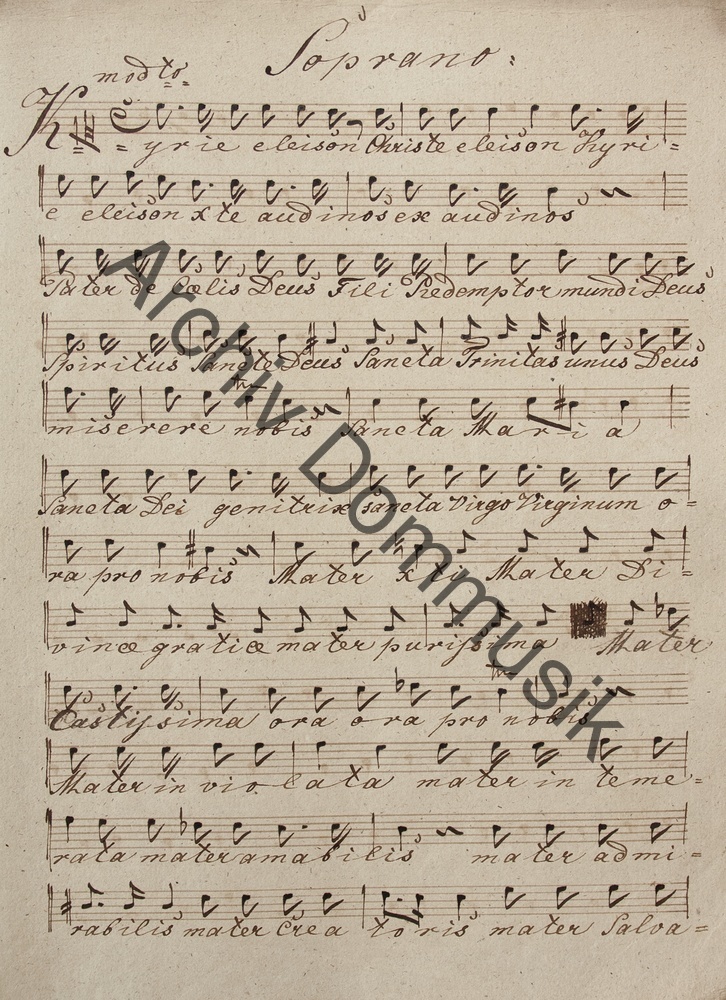 Soprano:
modto
Kyrie eleison Christe eleison Kyri=
e eleison xte audi nos ex audi nos
Pater de Cœlis Deus Fili Redemptor mundi Deus
Spiritus Sancte Deus Sancta Trinitas unus Deus
tr
miserere nobis Sancta Maria
Sancta Dei genitrix sancta Virgo Virginum o=
ra pro nobis Mater xti Mater Di=
vinæ gratiæ mater purissima Mater
tr
Castissima ora ora pro nobis
Mater inviolata mater inteme=
rata mater amabilis mater admi=
rabilis mater Creatoris mater Salva=
Archiv Dommusik